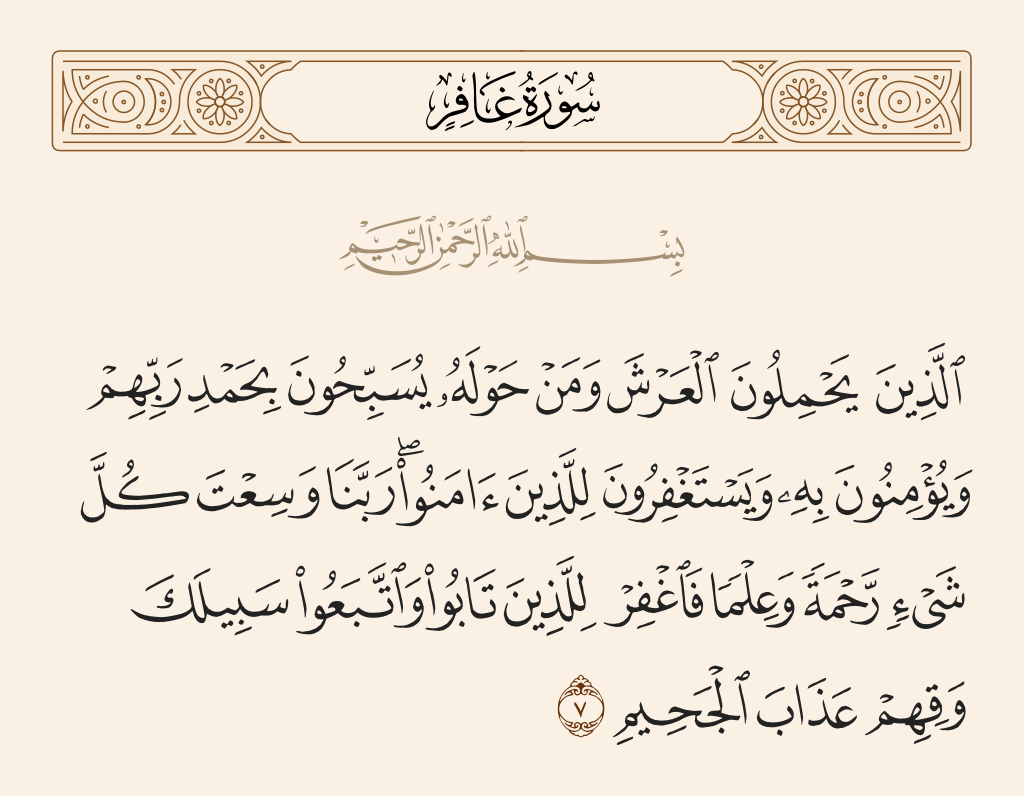 سُورَةُ غَافِرٍ
بِسْمِ ٱللَّهِ ٱلرَّحْمَٰنِ ٱلرَّحِيمِ
ٱلَّذِينَ يَحْمِلُونَ ٱلْعَرْشَ وَمَنْ حَوْلَهُۥ يُسَبِّحُونَ بِحَمْدِ رَبِّهِمْ
وَيُؤْمِنُونَ بِهِۦ وَيَسْتَغْفِرُونَ لِلَّذِينَ ءَامَنُوا۟ۖ رَبَّنَا وَسِعْتَ كُلَّ
شَىْءٍ رَّحْمَةً وَعِلْمًا فَٱغْفِرْ لِلَّذِينَ تَابُوا۟ وَٱتَّبَعُوا۟ سَبِيلَكَ
وَقِهِمْ عَذَابَ ٱلْجَحِيمِ ٧